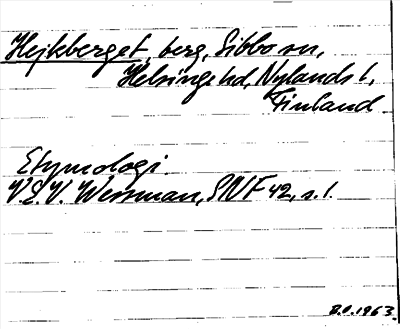 Hejkberget, berg, Sibbo sn,
Helsinge hd, Nylands l,
Finland
Etymologi.
V.E.V. Wessman, SNF 42, s. 1.
1963